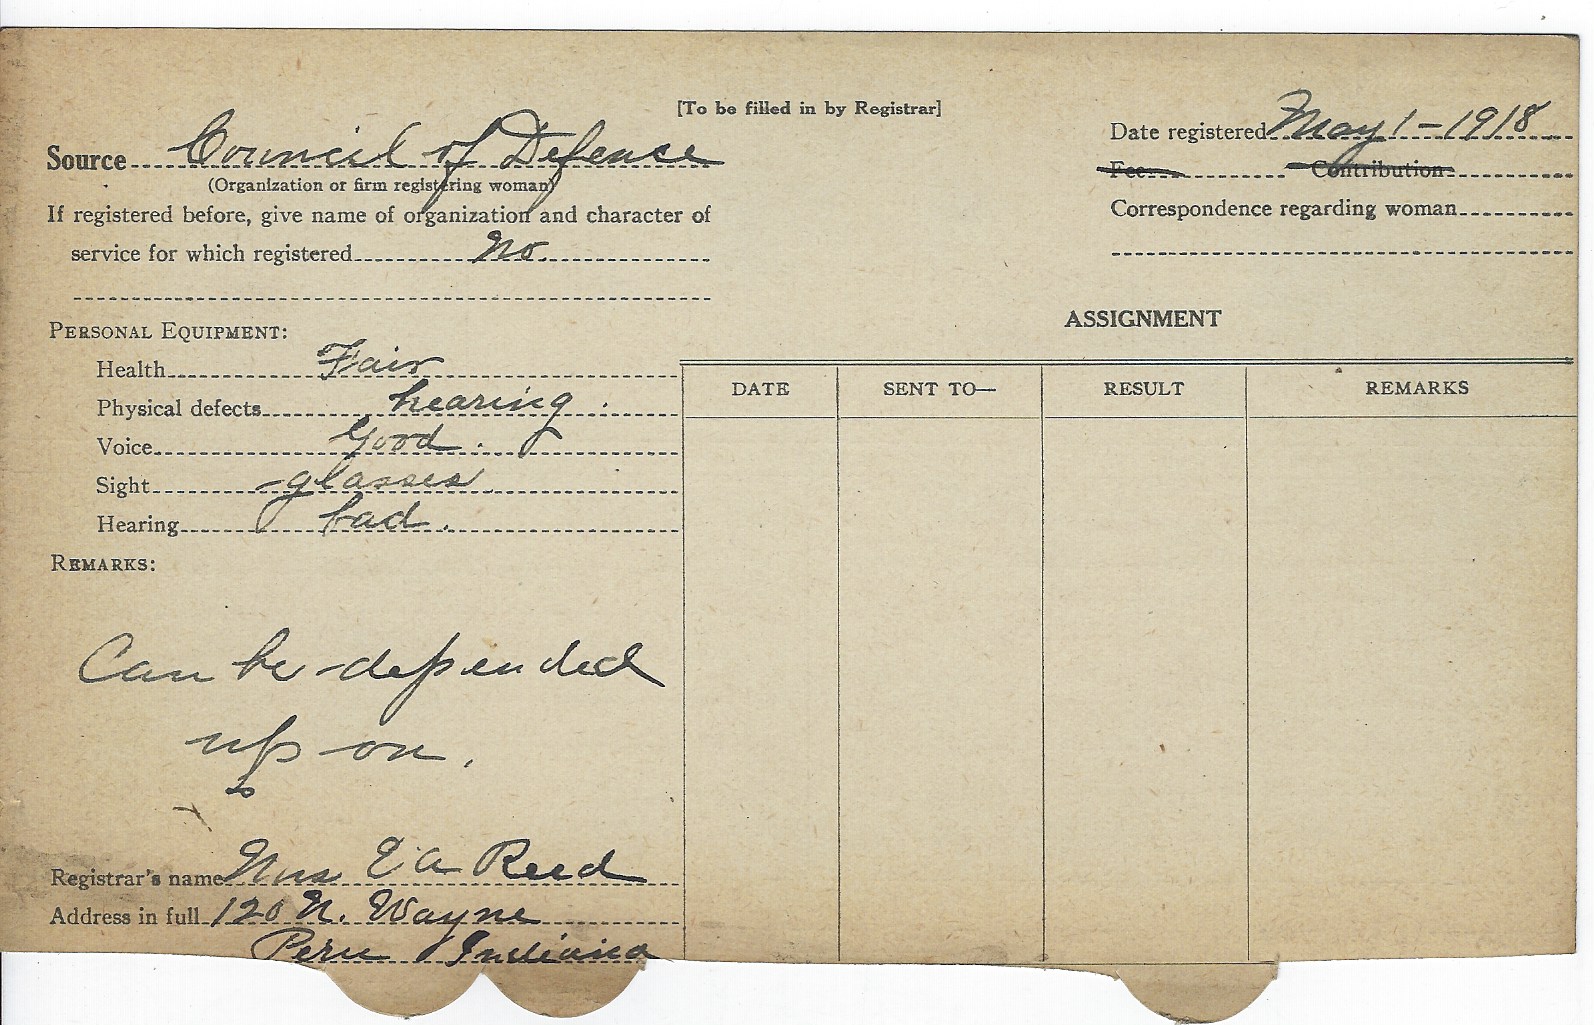 [To be filled in by Registrar]
Source Council of Defense
(Organization or firm registering woman)
If registered before, give name of organization and character of
service for which registered No.
Date registered May 1-1918
Fee Contribution
Correspondence regarding woman
PERSONAL EQUIPMENT:
Health Fair
Physical defects hearing.
Voice Good.
Sight glasses
Hearing bad.
REMARKS:
Can be depended
up on.
Registrar's name Mrs E A Reed
Address in full 120 N. Wayne
Peru Indiana
ASSIGNMENT
DATE SENT TO— RESULT REMARKS